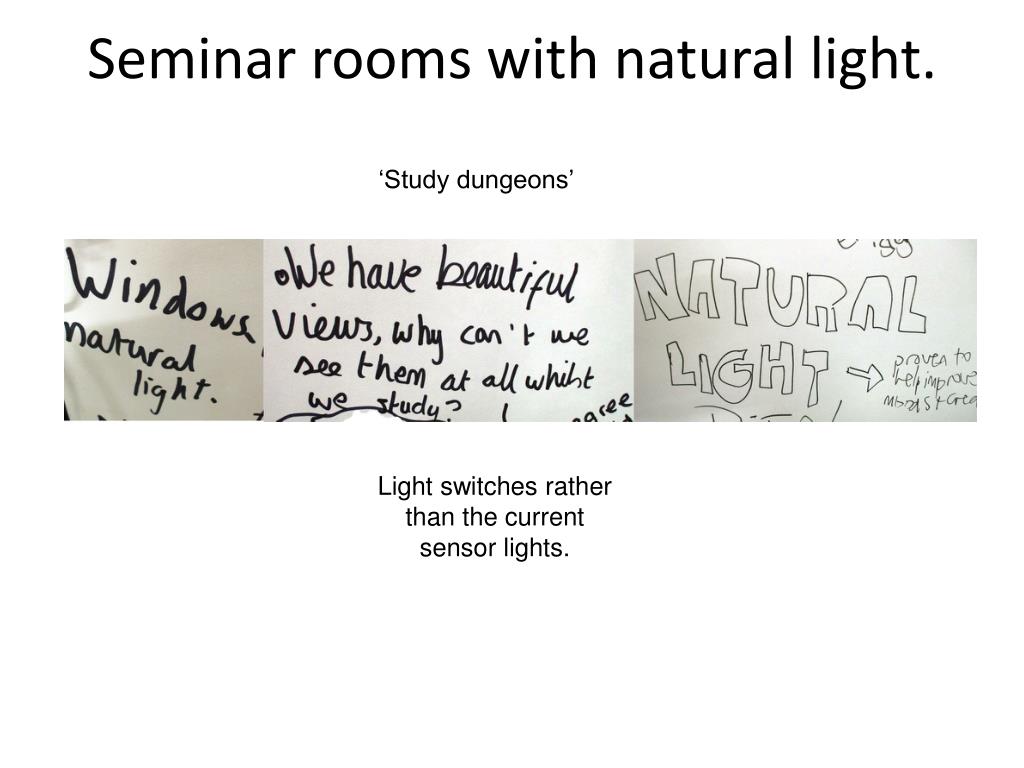 Seminar rooms with natural light.
‘Study dungeons’
Windows,
natural
light.
•We have beautiful
views, why can't we
see them at all whilst
we study?
agree
NATURAL
LIGHT → proven to
help improve
Light switches rather
than the current
sensor lights.